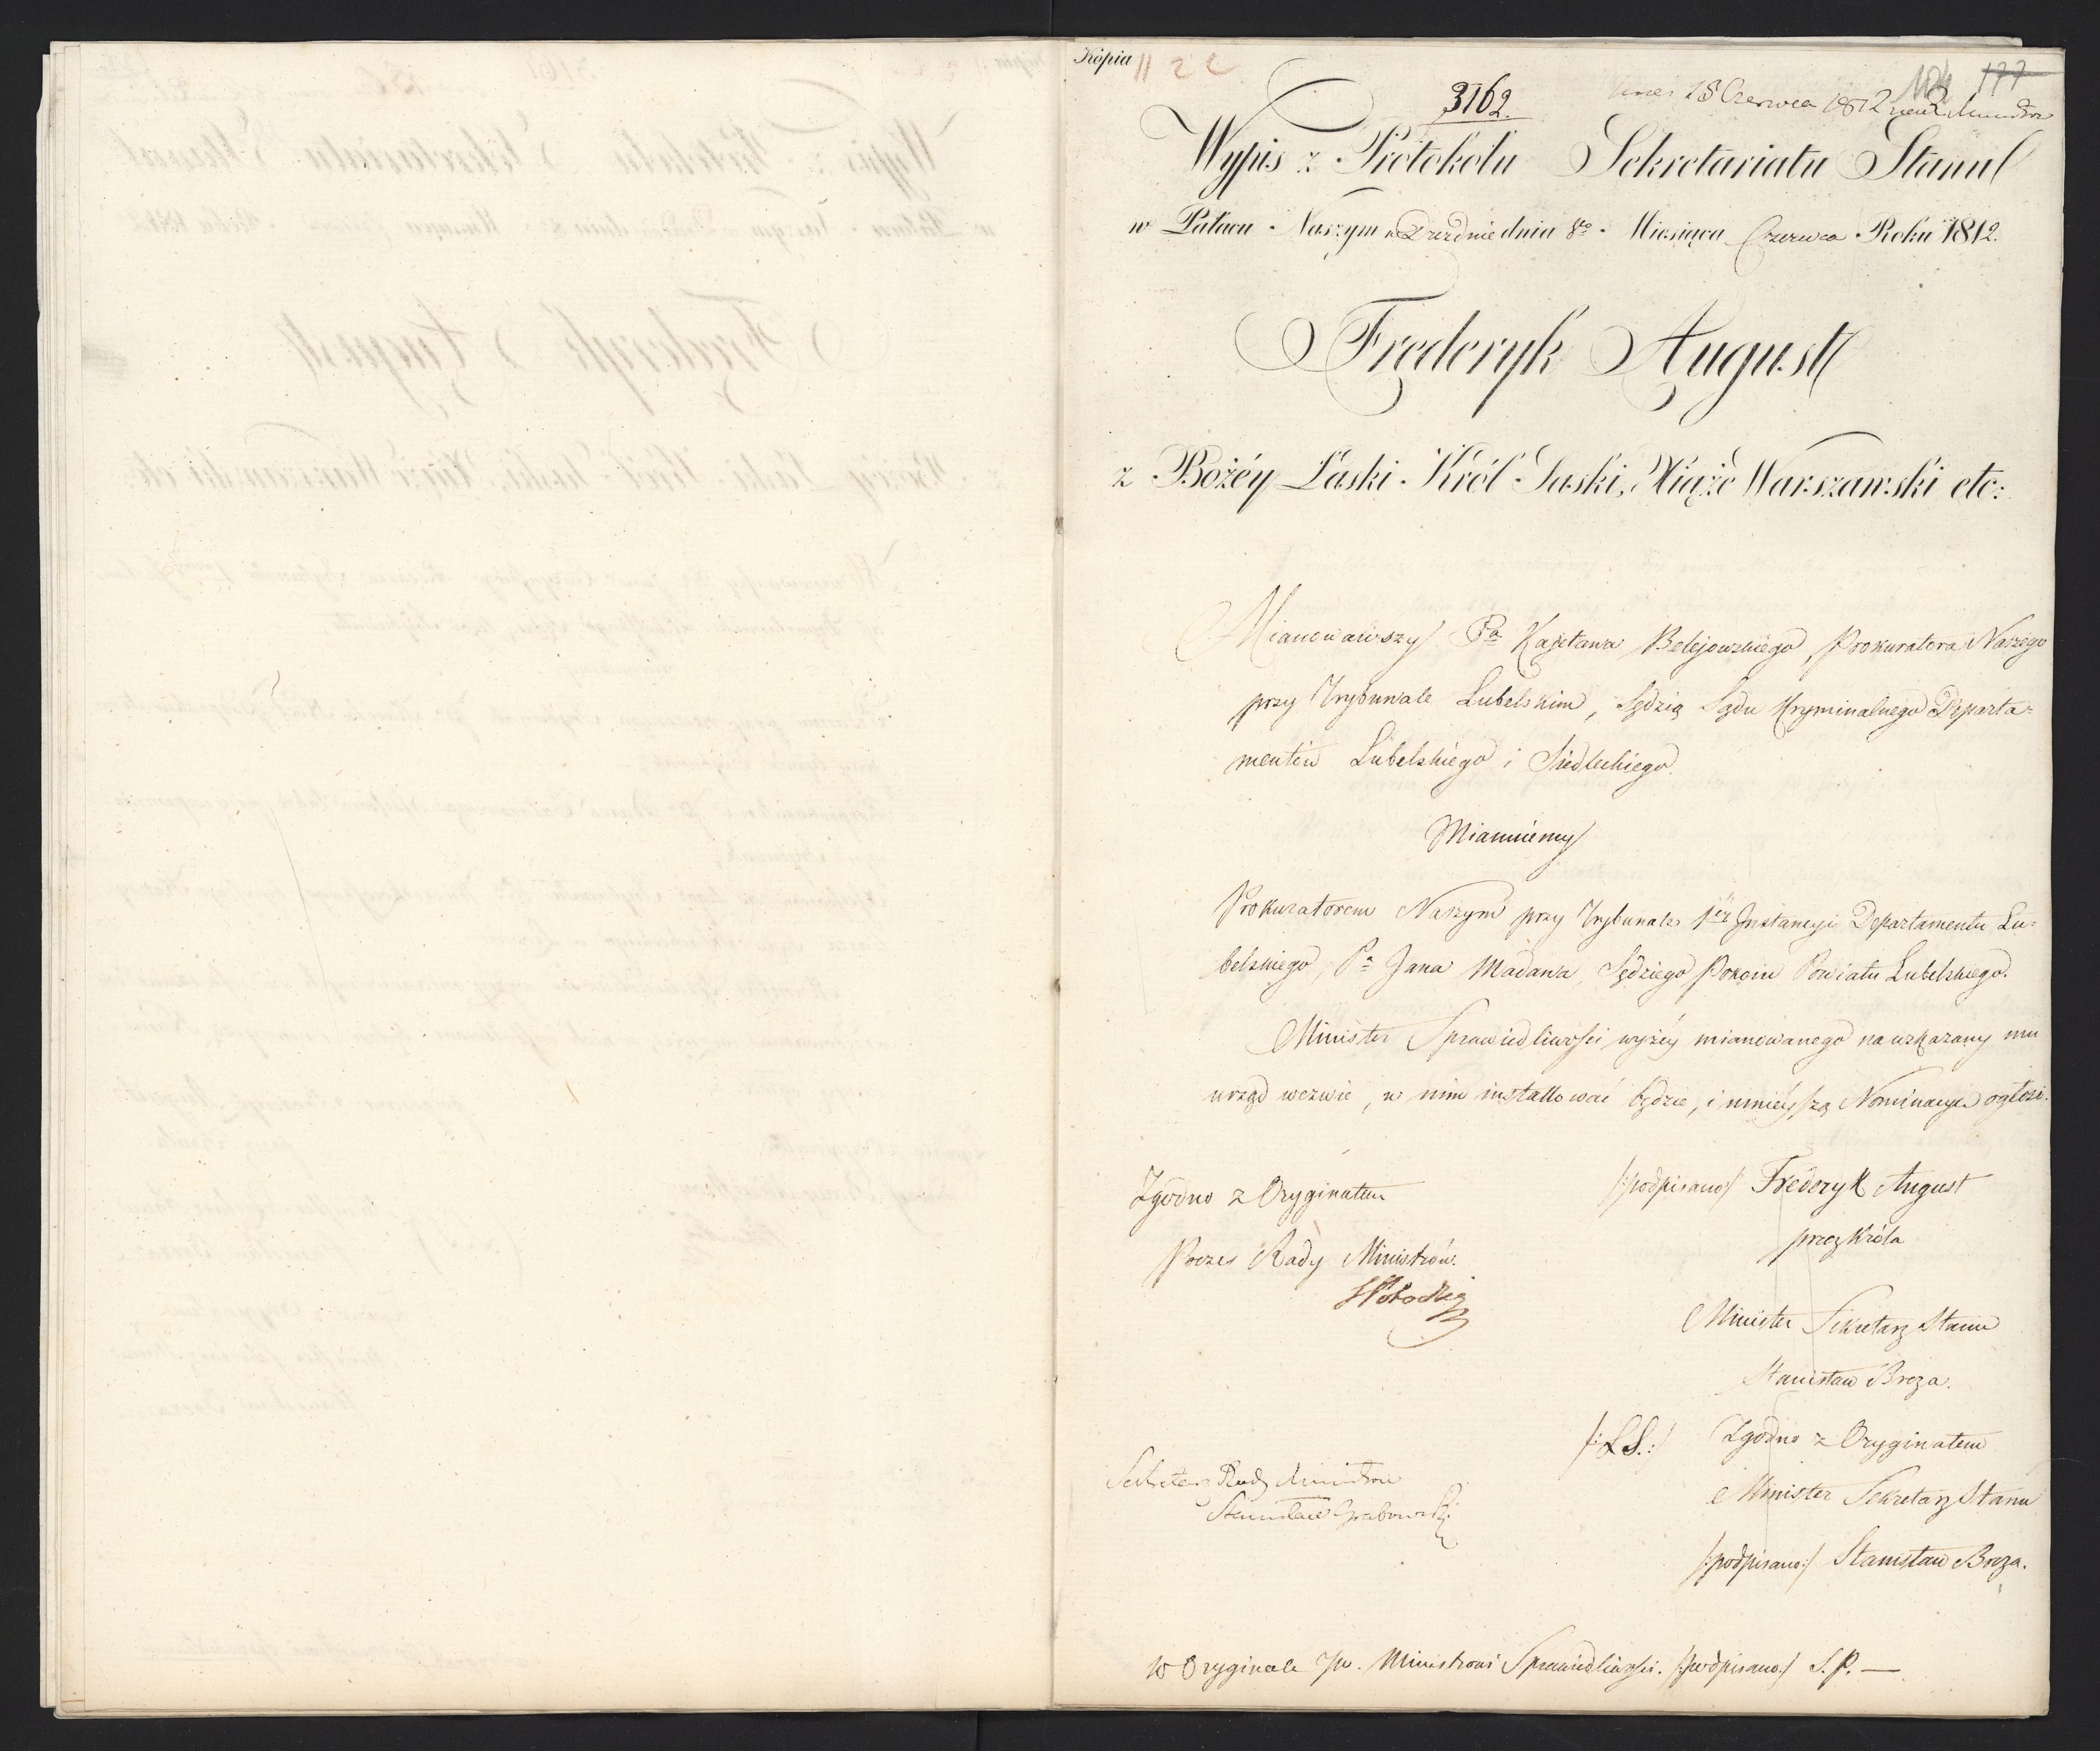 Kopia
11 22
3162.
18 Czerwca 1812
104 177
Wypis z Protokołu Sekretariatu Stanu
w Pałacu Naszym w Dreźnie dnia 8go Miesiąca Czerwca Roku 1812.
Frederyk August
z Bożéy Łaski Król Saski, Xiążę Warszawski etc:
Mianowawszy Pa Kajetana Belejowskiego, Prokuratora Naszego
przy Trybunale Lubelskim, Sędzią Sądu Kryminalnego Departa=
mentów Lubelskiego i Siedleckiego.
Mianuiemy
Prokuratorem Naszym przy Trybunale 1éy Instancyi Departamentu Lu=
belskiego, Pa Jana Madana, Sędziego Pokoiu Powiatu Lubelskiego.
Minister Sprawiedliwości wyżéy mianowanego na wskazany mu
urząd wezwie, w nim installować będzie, i ninieyszą Nominacyę ogłosi.
Zgodno z Oryginałem
/:podpisano/ Frederyk August
przez Króla
Prezes Rady Ministrów.
SPotocki
Minister Sekretarz Stanu
Stanisław Breza.
/:LS.:/ Zgodno z Oryginałem
Minister Sekretarz Stanu
/:podpisano:/ Stanisław Breza.
Sekretarz Rady Ministrów
Stanisław Grabowski
W Oryginale JW. Ministrowi Sprawiedliwości. /:podpisano:/ S.P. —